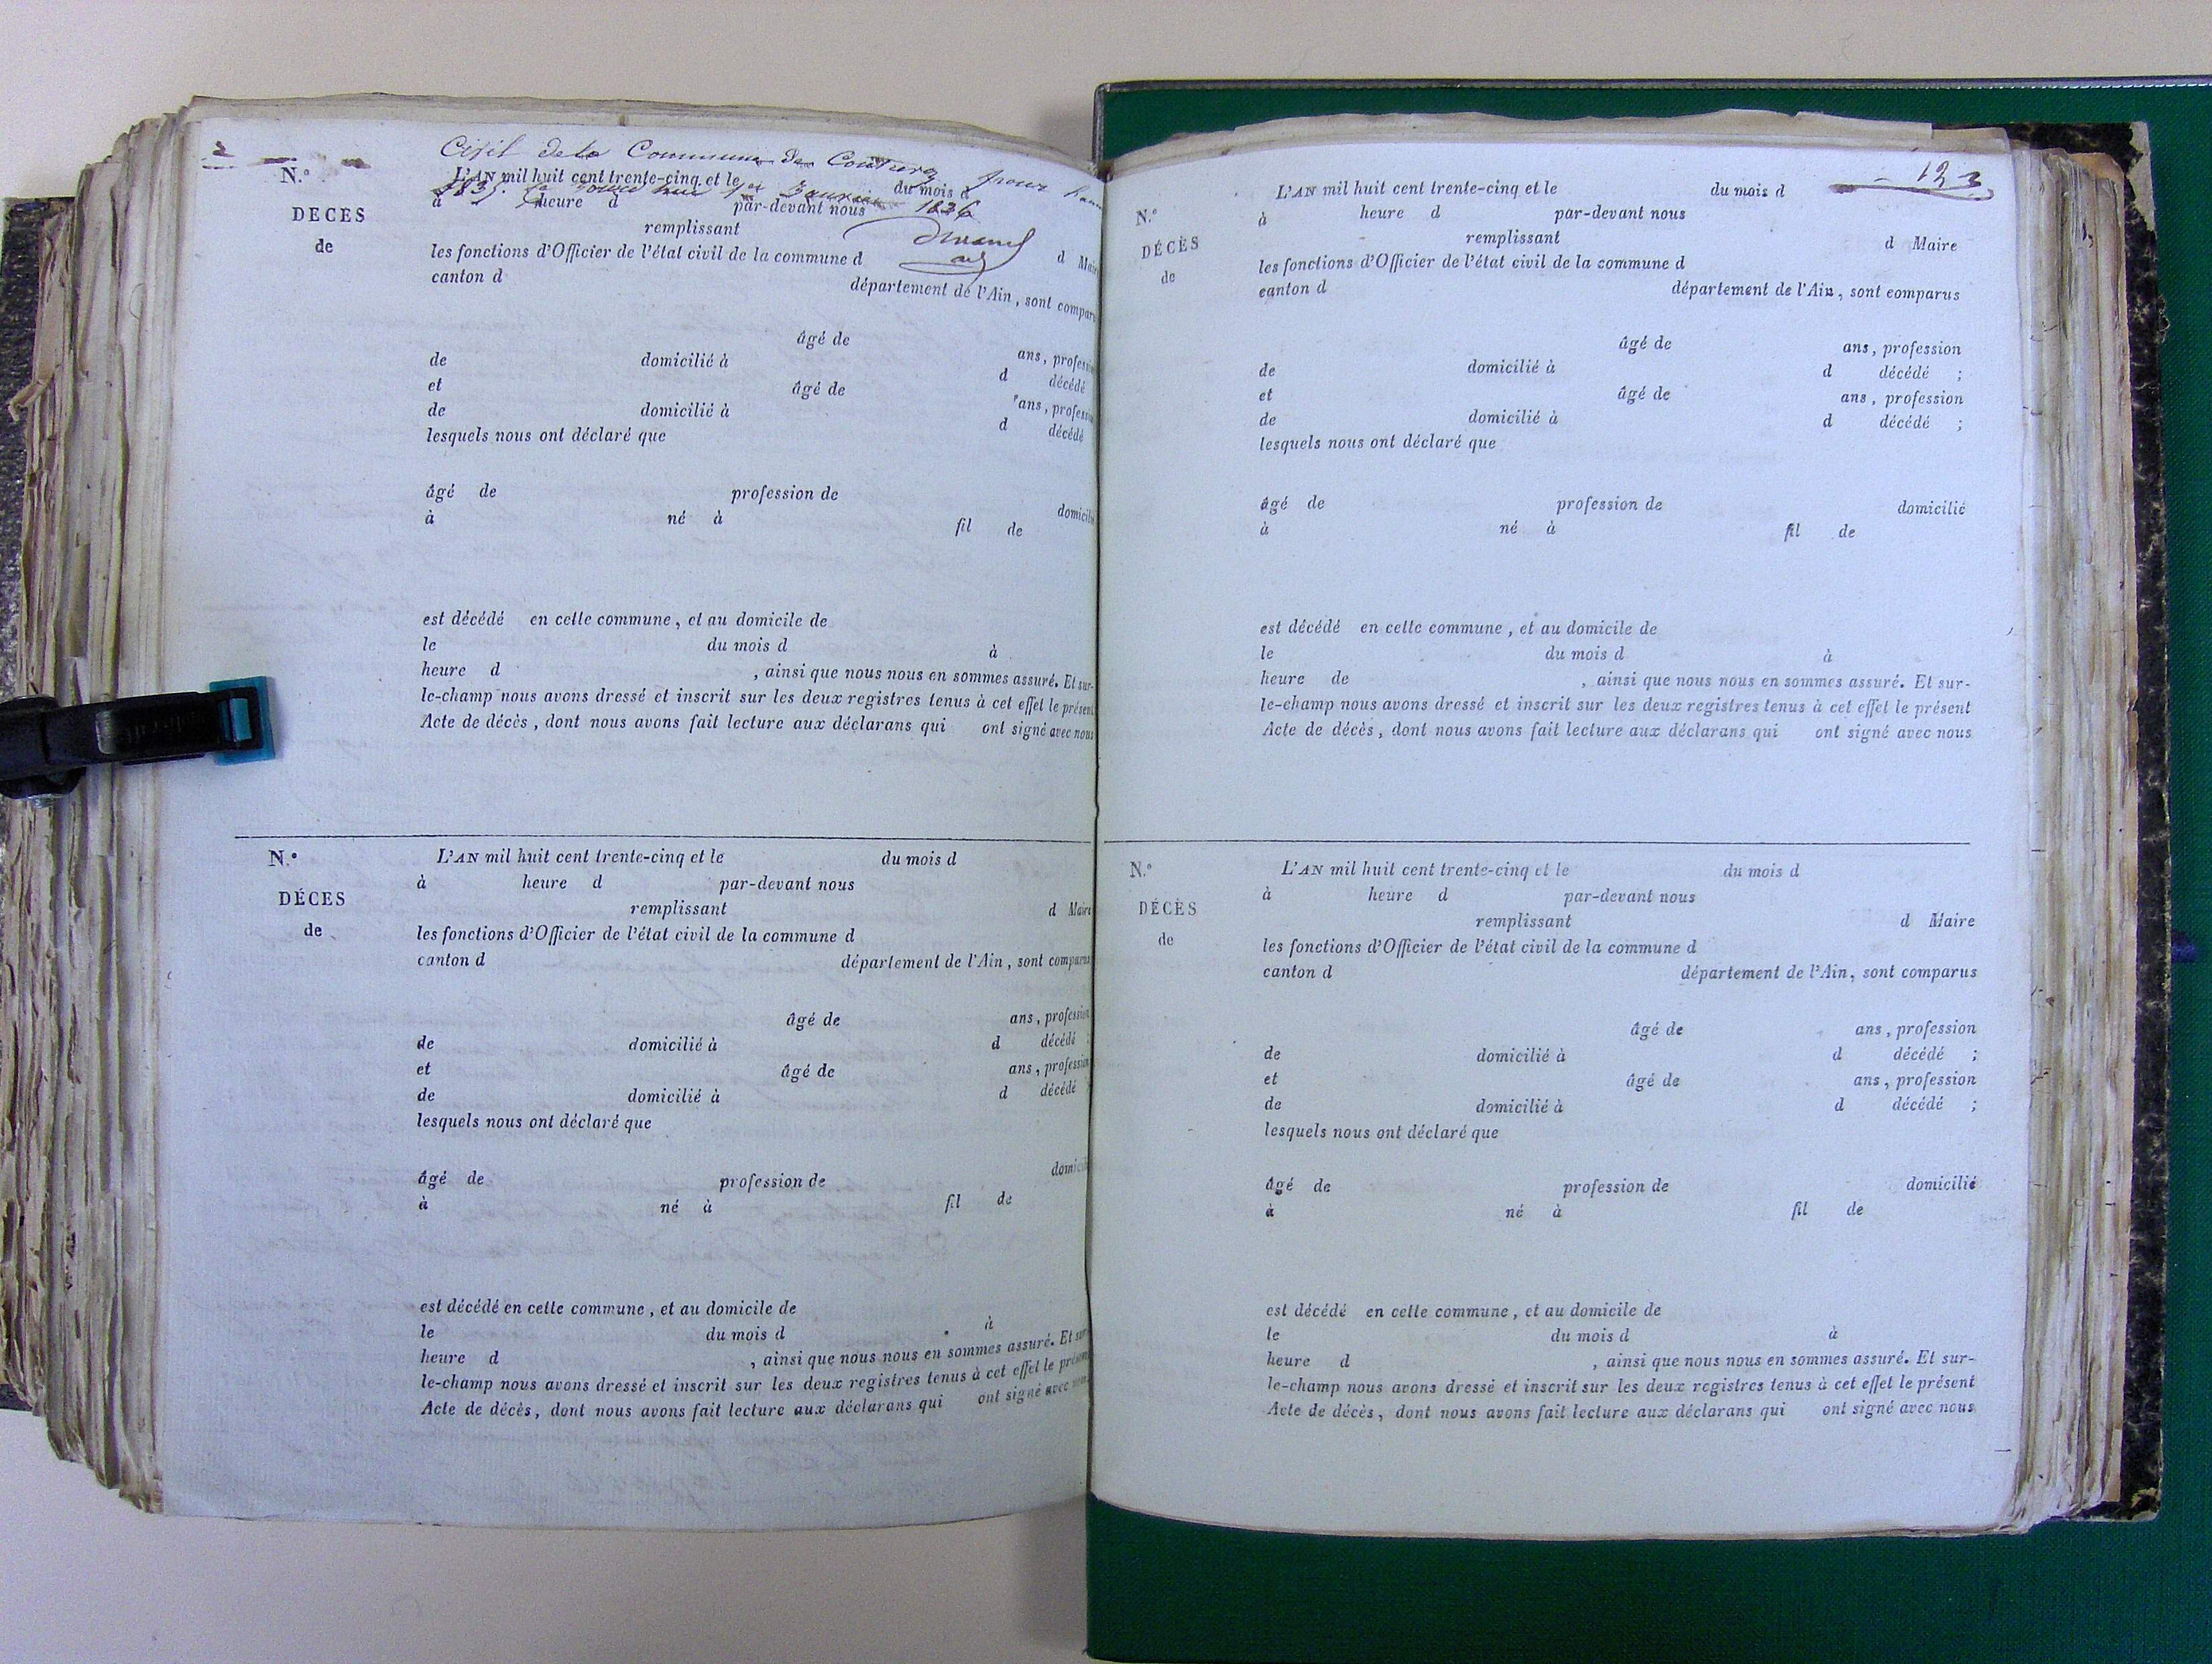 Civil de la Commune de pour
N.° L'AN mil huit cent trente-cinq et le du mois d
1835. 1er 1836
à heure d par-devant nous
DECES
remplissant
de
les fonctions d'Officier de l'état civil de la commune d d Mair
canton d département de l'Ain, sont comparu
âgé de ans, profession
de domicilié à d décédé
et âgé de ans, profession
de domicilié à d décédé
lesquels nous ont déclaré que
âgé de profession de domicilié
à né à fil de
est décédé en cette commune, et au domicile de
le du mois d à
heure d , ainsi que nous nous en sommes assuré. Et sur-
le-champ nous avons dressé et inscrit sur les deux registres tenus à cet effet le présent
Acte de décès, dont nous avons fait lecture aux déclarans qui ont signé avec nous
N.° L'AN mil huit cent trente-cinq et le du mois d
à heure d par-devant nous
DÉCES
remplissant d Maire
de
les fonctions d'Officier de l'état civil de la commune d
canton d département de l'Ain, sont comparus
âgé de ans, profession
de domicilié à d décédé
et âgé de ans, profession
de domicilié à d décédé
lesquels nous ont déclaré que
âgé de profession de domicili
à né à fil de
est décédé en cette commune, et au domicile de
le du mois d à
heure d , ainsi que nous nous en sommes assuré. Et sur
le-champ nous avons dressé et inscrit sur les deux registres tenus à cet effet le présent
Acte de décès, dont nous avons fait lecture aux déclarans qui ont signé avec nous
123
L'AN mil huit cent trente-cinq et le du mois d
N.°
à heure d par-devant nous
DÉCÈS
remplissant d Maire
de
les fonctions d'Officier de l'état civil de la commune d
canton d département de l'Ain, sont comparus
âgé de ans, profession
de domicilié à d décédé ;
et âgé de ans, profession
de domicilié à d décédé ;
lesquels nous ont déclaré que
âgé de profession de domicilié
à né à fil de
est décédé en cette commune, et au domicile de
le du mois d à
heure de , ainsi que nous nous en sommes assuré. Et sur-
le-champ nous avons dressé et inscrit sur les deux registres tenus à cet effet le présent
Acte de décès, dont nous avons fait lecture aux déclarans qui ont signé avec nous
N.° L'AN mil huit cent trente-cinq et le du mois d
à heure d par-devant nous
DÉCÈS
remplissant d Maire
de
les fonctions d'Officier de l'état civil de la commune d
canton d département de l'Ain, sont comparus
âgé de ans, profession
de domicilié à d décédé ;
et âgé de ans, profession
de domicilié à d décédé ;
lesquels nous ont déclaré que
âgé de profession de domicilié
à né à fil de
est décédé en cette commune, et au domicile de
le du mois d à
heure d , ainsi que nous nous en sommes assuré. Et sur-
le-champ nous avons dressé et inscrit sur les deux registres tenus à cet effet le présent
Acte de décès, dont nous avons fait lecture aux déclarans qui ont signé avec nous